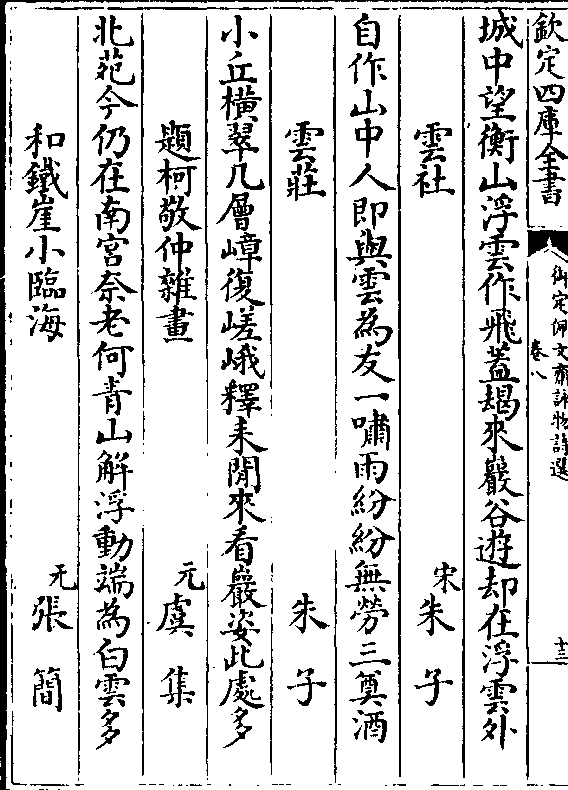 欽定四庫全書
御定佩文齋詠物詩選
卷八
十三
城中望衡山浮雲作飛蓋朅來巖谷遊却在浮雲外
雲社 宋朱子
自作山中人即與雲為友一嘯雨紛紛無勞三奠酒
雲莊 朱子
小丘横翠几層嶂復嵯峨釋耒閒來看巖姿此處多
題柯敬仲雜畫 元虞集
北苑今仍在南宮奈老何青山解浮動端為白雲多
和鐵崖小臨海 元張簡